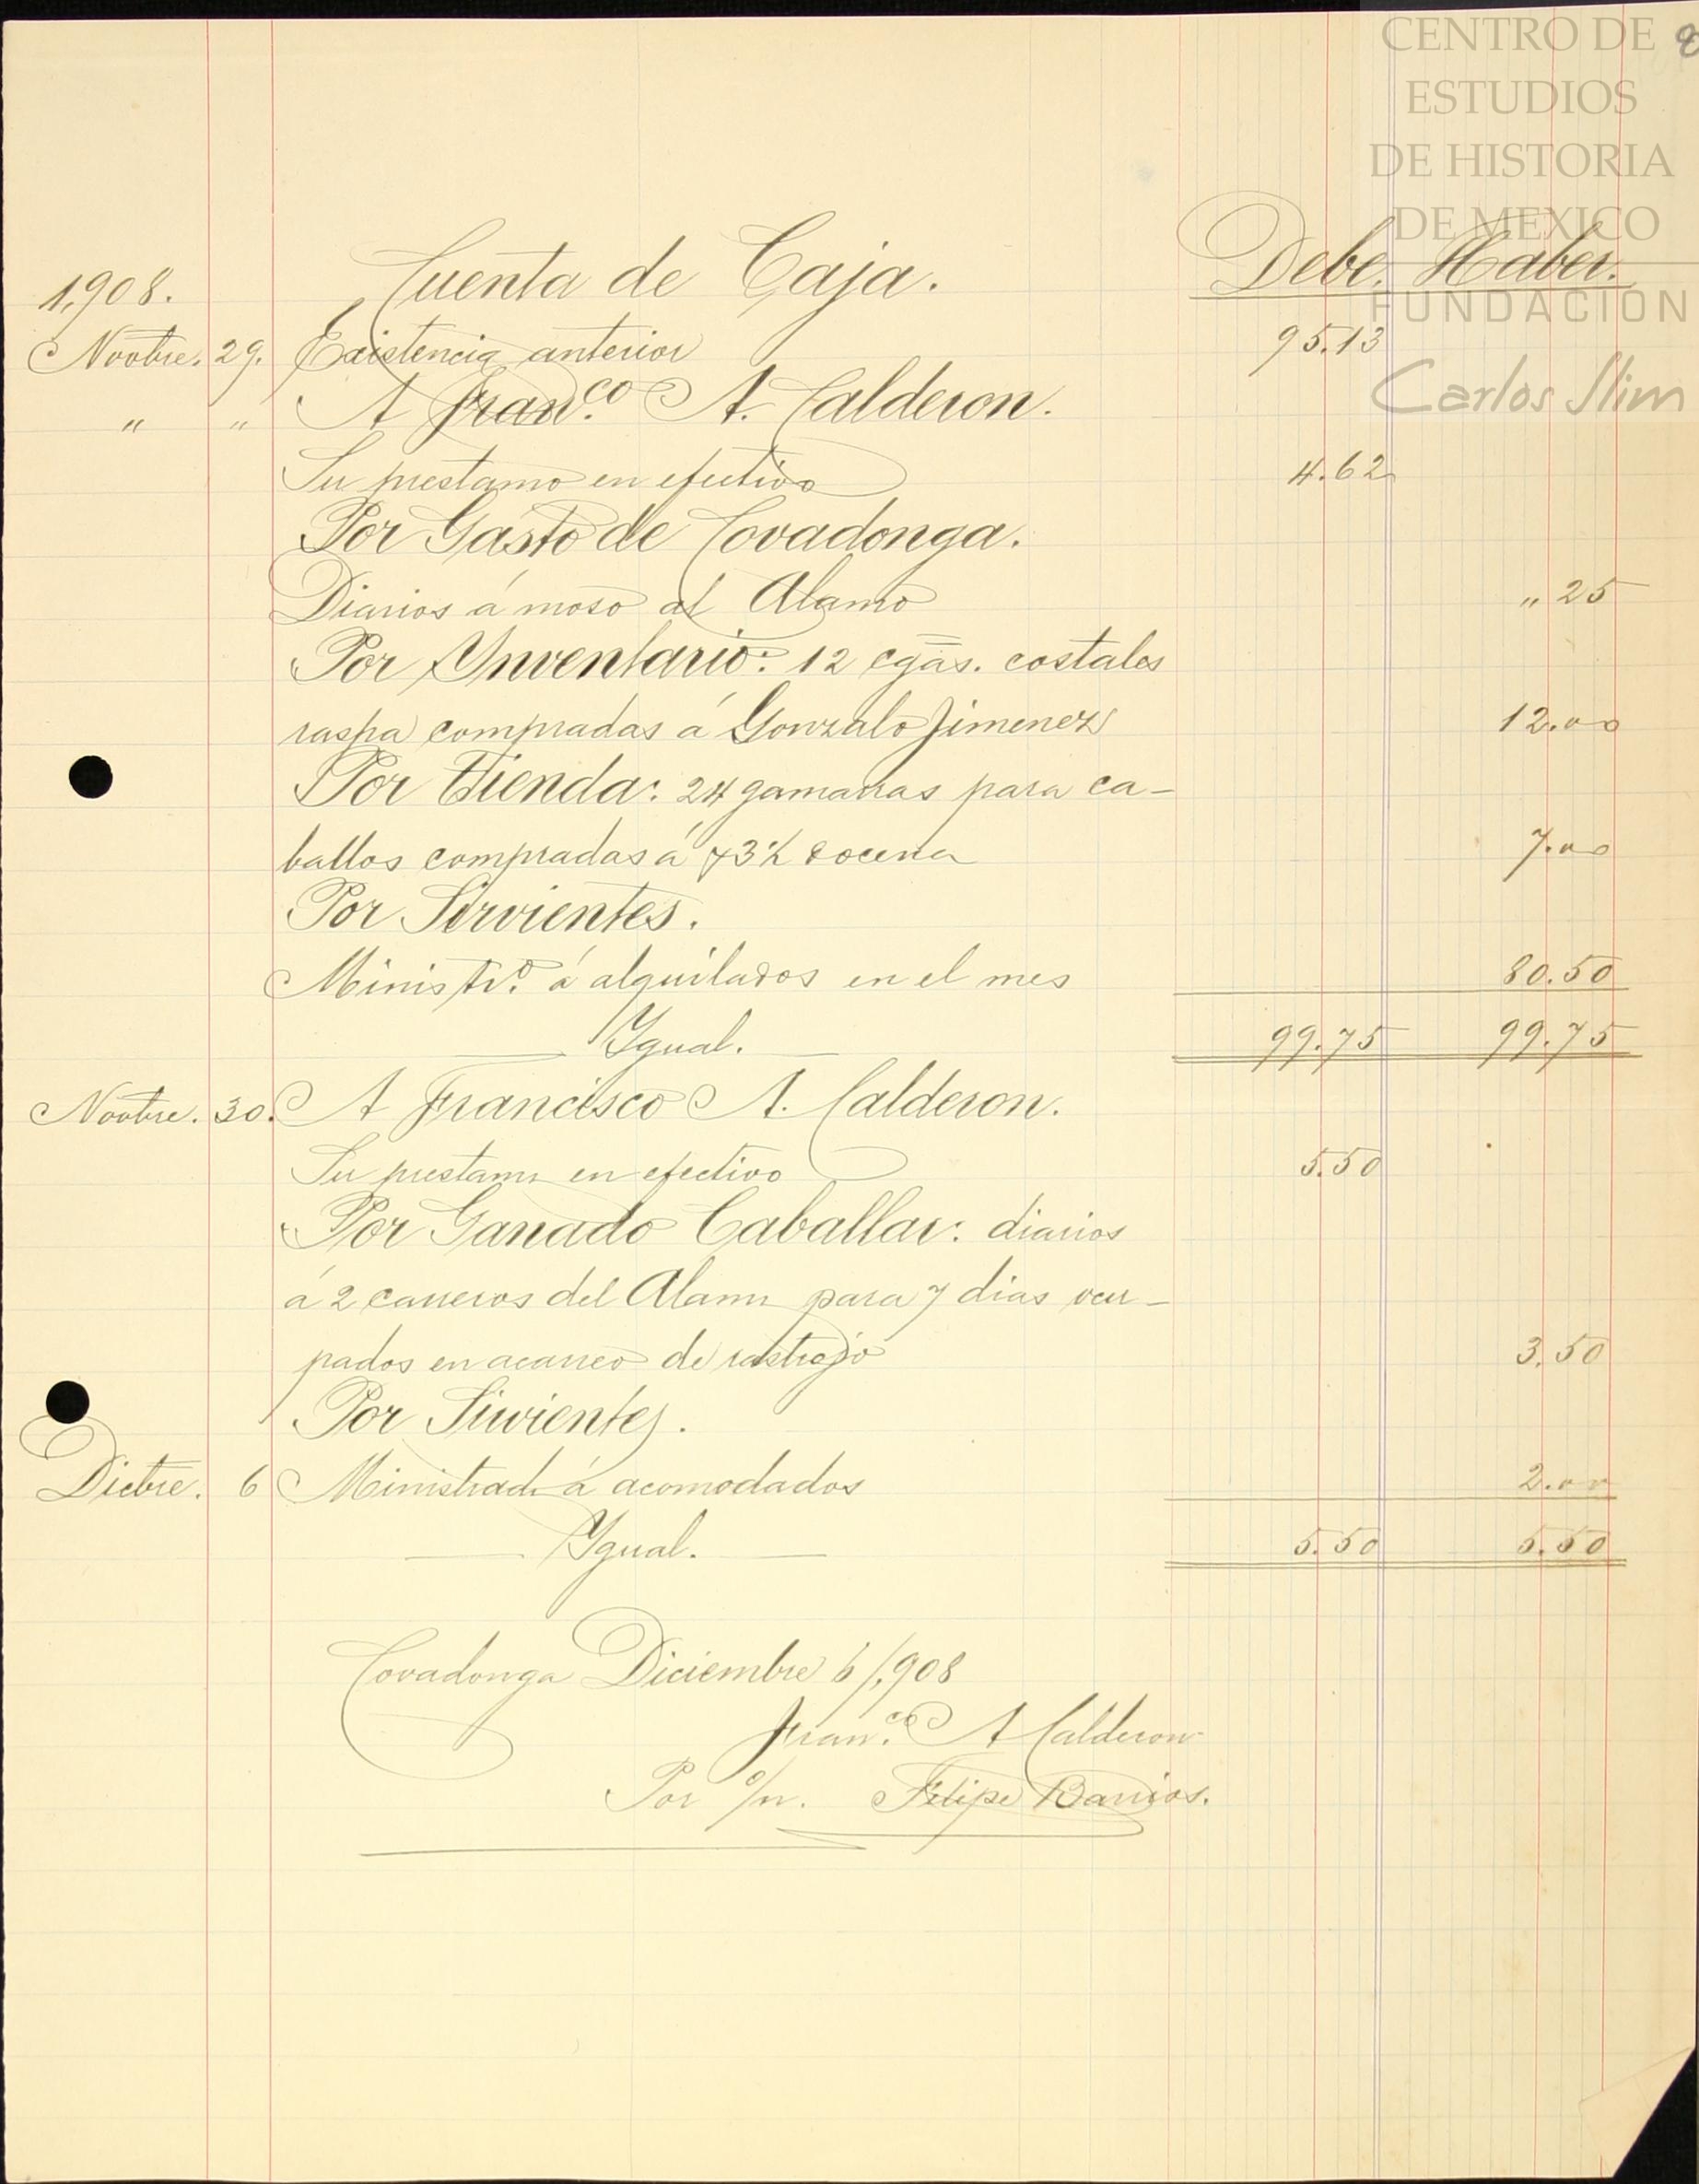 CENTRO DE
ESTUDIOS
DE HISTORIA
DE MEXICO
FUNDACIÓN
Carlos Slim
8
1,908. Cuenta de Caja. Debe. Haber.
Novbre. 29. Existencia anterior 95.13
" " A Fran.co A. Calderon.
Su prestamo en efectivo 4.62
Por Gasto de Covadonga.
Diarios á moso al Alamo " 25
Por Ynventario: 12 cgas. costales
raspa compradas á Gonzalo Jimenez 12.00
Por Tienda: 24 gamarras para ca-
ballos compradas á $3½ docena 7.00
Por Sirvientes.
Ministdo. á alquilados en el mes 80.50
Ygual. 99.75 99.75
Novbre. 30. A Francisco A. Calderon.
Su prestamo en efectivo 5.50
Por Ganado Caballar: diarios
á 2 carreros del Alamo para 7 dias ocu-
pados en acarreo de rastrojo 3.50
Por Sirvientes.
Dicbre. 6 Ministrado á acomodados 2.00
Ygual. 5.50 5.50
Covadonga Diciembre 6/,908
Fran.co A Calderon
Por o/n. Felipe Barrios.